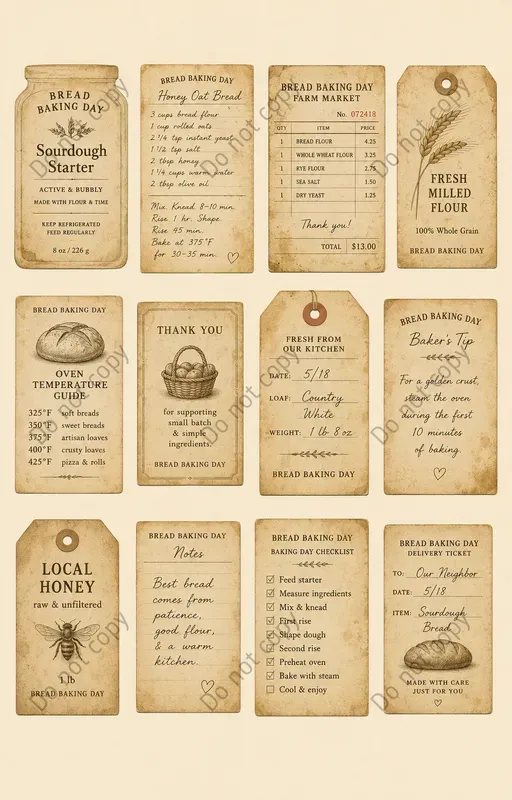 BREAD
BAKING DAY
Sourdough
Starter
ACTIVE & BUBBLY
MADE WITH FLOUR & TIME
KEEP REFRIGERATED
FEED REGULARLY
8 oz / 226 g
BREAD BAKING DAY
Honey Oat Bread
3 cups bread flour
1 cup rolled oats
2 1/4 tsp instant yeast
1 1/2 tsp salt
2 tbsp honey
1 1/4 cups warm water
2 tbsp olive oil
Mix. Knead 8-10 min.
Rise 1 hr. Shape.
Rise 45 min.
Bake at 375°F
for 30-35 min.
BREAD BAKING DAY
FARM MARKET
No. 072418
QTY ITEM PRICE
1 BREAD FLOUR 4.25
1 WHOLE WHEAT FLOUR 3.25
1 RYE FLOUR 2.75
1 SEA SALT 1.50
1 DRY YEAST 1.25
Thank you!
TOTAL $13.00
FRESH
MILLED
FLOUR
100% Whole Grain
BREAD BAKING DAY
BREAD BAKING DAY
OVEN
TEMPERATURE
GUIDE
325°F soft breads
350°F sweet breads
375°F artisan loaves
400°F crusty loaves
425°F pizza & rolls
THANK YOU
for supporting
small batch
& simple
ingredients.
BREAD BAKING DAY
FRESH FROM
OUR KITCHEN
DATE: 5/18
LOAF: Country
White
WEIGHT: 1 lb 8 oz
BREAD BAKING DAY
BREAD BAKING DAY
Baker's Tip
For a golden crust,
steam the oven
during the first
10 minutes
of baking.
LOCAL
HONEY
raw & unfiltered
1 lb
BREAD BAKING DAY
BREAD BAKING DAY
Notes
Best bread
comes from
patience,
good flour,
& a warm
kitchen.
BREAD BAKING DAY
BAKING DAY CHECKLIST
Feed starter
Measure ingredients
Mix & knead
First rise
Shape dough
Second rise
Preheat oven
Bake with steam
Cool & enjoy
BREAD BAKING DAY
DELIVERY TICKET
TO: Our Neighbor
DATE: 5/18
ITEM: Sourdough
Bread
MADE WITH CARE
JUST FOR YOU
Do not copy
Do not copy
Do not copy
Do not copy
Do not copy
Do not copy
Do not copy
Do not copy
Do not copy
Do not copy
Do not copy
Do not copy